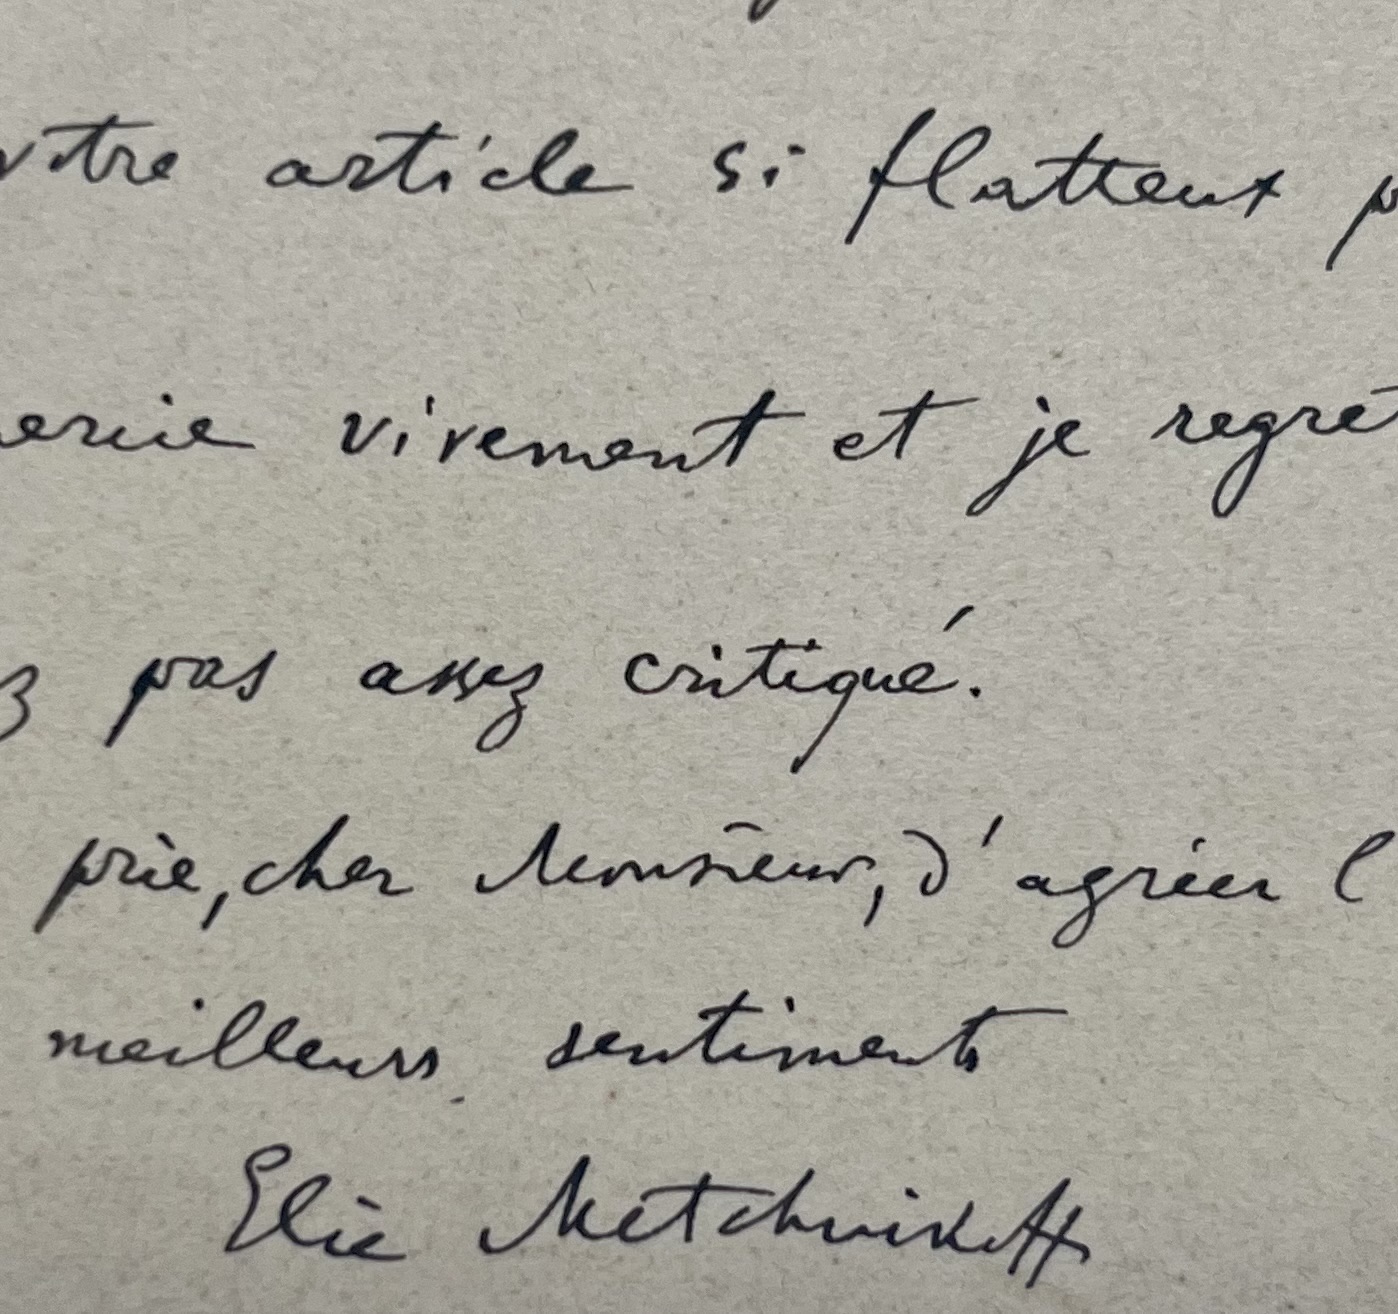 votre article si flatteux p
erie vivement et je regret
z pas assez critiqué.
prie, cher Monsieur, d'agréer l
meilleurs sentiments
Elie Metchnikoff